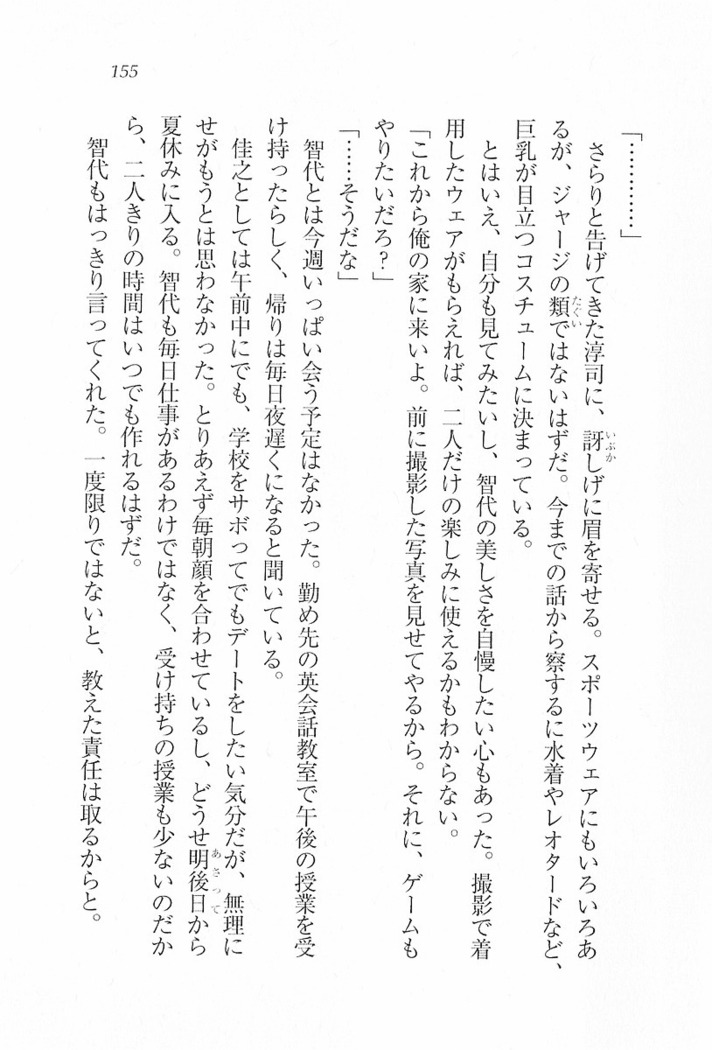 155
「…………」
さらりと告げてきた淳司に、訝しげに眉を寄せる。スポーツウェアにもいろいろあ
るが、ジャージの類ではないはずだ。今までの話から察するに水着やレオタードなど、
巨乳が目立つコスチュームに決まっている。
とはいえ、自分も見てみたいし、智代の美しさを自慢したい心もあった。撮影で着
用したウェアがもらえれば、二人だけの楽しみに使えるかもわからない。
「これから俺の家に来いよ。前に撮影した写真を見せてやるから。それに、ゲームも
やりたいだろ?」
「……そうだな」
智代とは今週いっぱい会う予定はなかった。勤め先の英会話教室で午後の授業を受
け持ったらしく、帰りは毎日夜遅くになると聞いている。
佳之としては午前中にでも、学校をサボってでもデートをしたい気分だが、無理に
せがもうとは思わなかった。とりあえず毎朝顔を合わせているし、どうせ明後日から
夏休みに入る。智代も毎日仕事があるわけではなく、受け持ちの授業も少ないのだか
ら、二人きりの時間はいつでも作れるはずだ。
智代もはっきり言ってくれた。一度限りではないと、教えた責任は取るからと。